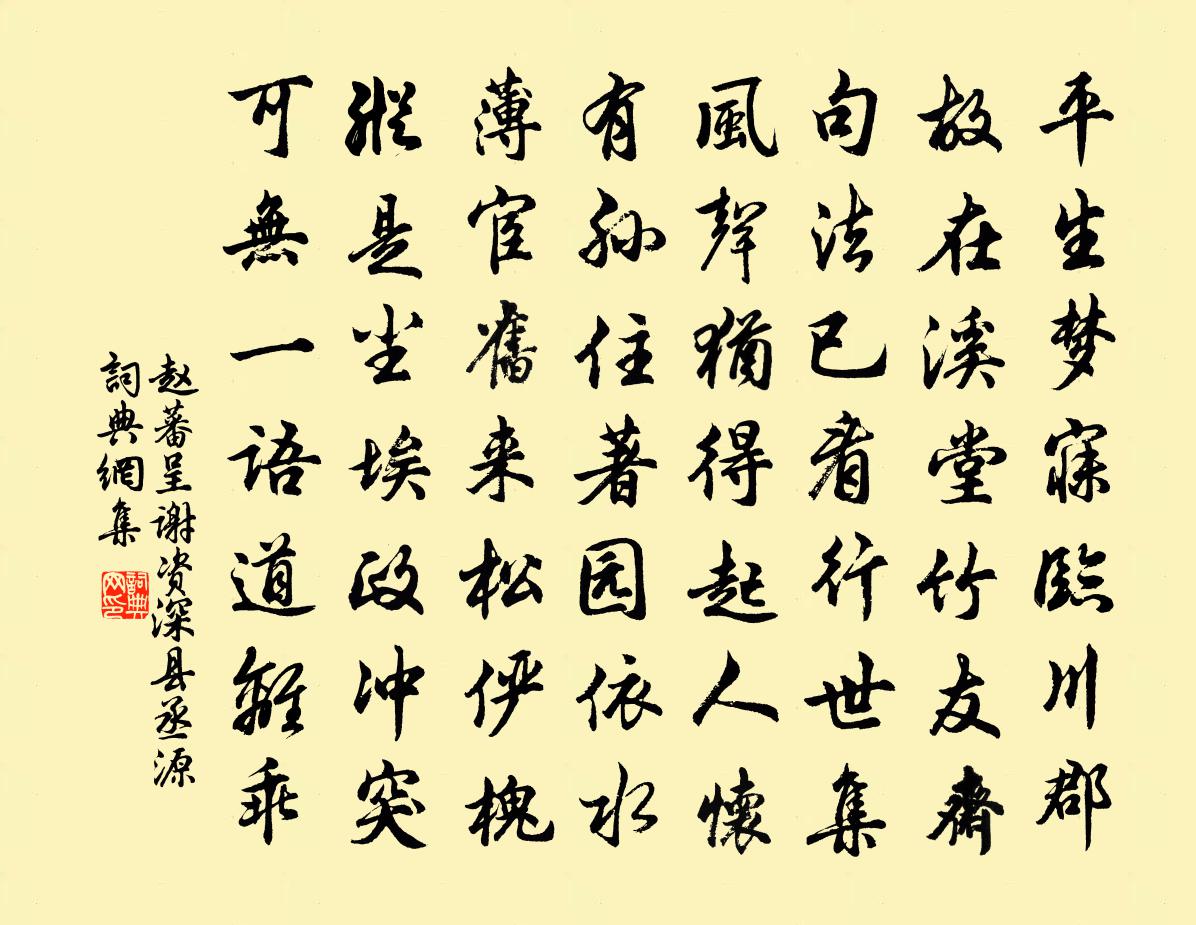 平生梦寐临川郡
故在溪堂竹友斋
句法已看行世集
風聲猶得起人懷
有孙住著园依水
薄宦舊来松俨槐
縱是尘埃政冲突
可無一语道離乖
赵蕃呈谢资深县丞源
詞典網集
詞典网印